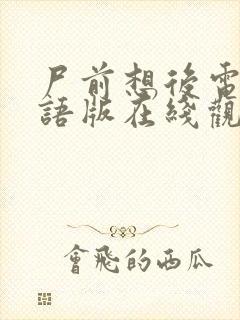 尸前想後電
語版在綫觀
會飛的西瓜